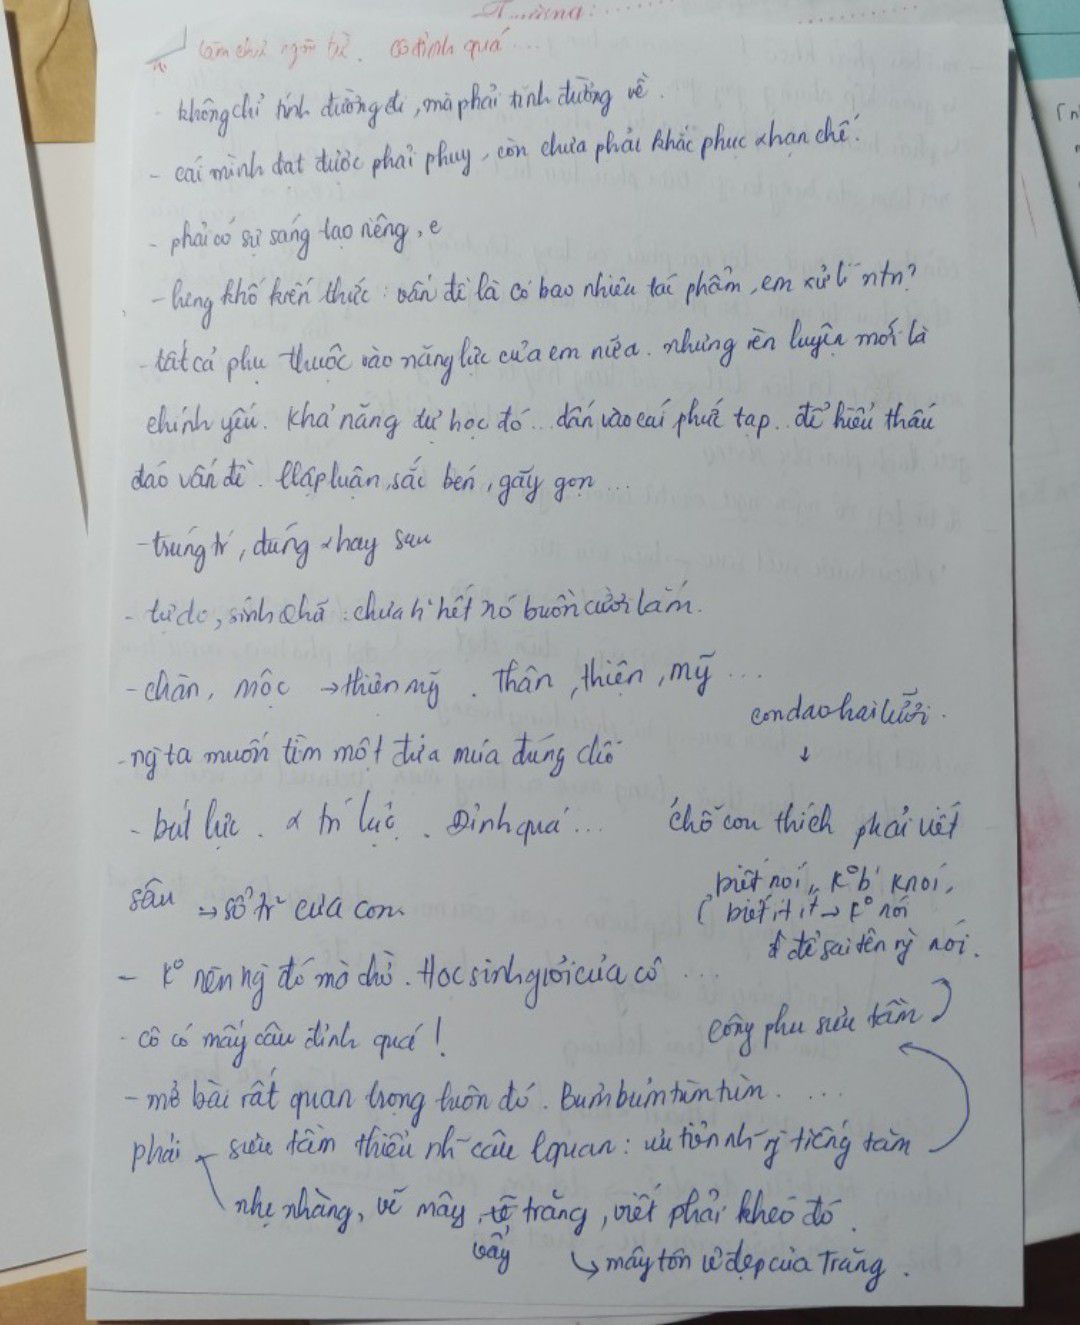 làm chủ ngôn từ. Cô đỉnh quá...
- không chỉ tính đường đi, mà phải tính đường về.
- cái mình đạt được phải phuy, còn chưa phải khắc phục & hạn chế.
- phải có sự sáng tạo riêng, e
- lượng khổ kiến thức: vấn đề là có bao nhiêu tác phẩm, em xử lí ntn?
- tất cả phụ thuộc vào năng lực của em nữa. nhưng rèn luyện mới là
chính yếu. Khả năng tự học đó... dấn vào cái phức tạp.. để hiểu thấu
đáo vấn đề. lập luận, sắc bén, gãy gọn...
- trúng tr, đúng & hay sau
- tự do, sinh chã: chưa h hết nó buồn cười lắm.
- chân, mộc → thiện mỹ. Thân, thiện, mỹ...
con dao hai lưỡi.
↓
- ng ta muốn tìm một đứa múa đúng chỗ
- bút lực. & trí lực. Đỉnh quá... chỗ con thích phải viết
sâu → sở tr của con.
biết nói, k° b' k nói,
( biết ít ít → k° nói
để sai tên ng` nói.
- k° nên ng đó mờ chỉ. Học sinh giỏi của cô...
- cô có mấy câu đỉnh quá!
công phu sưu tầm
- mở bài rất quan trọng luôn đó. Bùm bùm tùm tùm....
phải sưu tầm thiếu nh~ câu lquan: ưu tiên nh~ ng` tiếng tăm
nhẹ nhàng, vẽ mây, trăng, viết phải khéo đó.
vẩy
↳ mây tôn vẻ đẹp của Trăng.